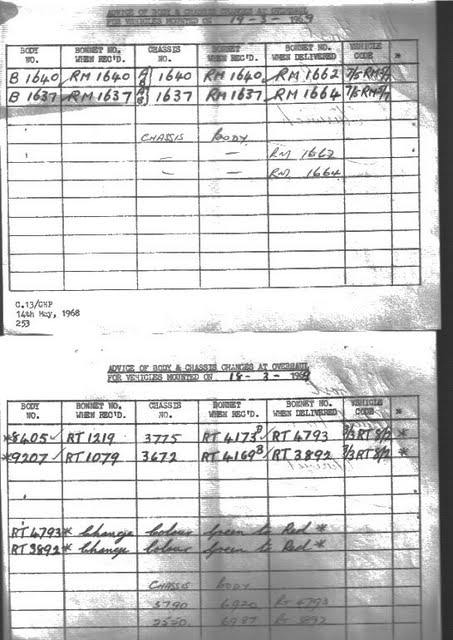 ADVICE OF BODY & CHASSIS CHANGES AT OVERHAUL
FOR VEHICLES MOUNTED ON 19-3-1969
BODY NO. BONNET NO. WHEN REC'D. CHASSIS NO. BONNET WHEN REC'D. BONNET NO. WHEN DELIVERED VEHICLE CODE *
B 1640 RM 1640 1640 RM 1640 RM 1662 7/5 RM
B 1637 RM 1637 1637 RM 1637 RM 1664 7/5 RM
CHASSIS BODY
— — RM 1662
— — RM 1664
C.13/GHP
14th May, 1968
253
ADVICE OF BODY & CHASSIS CHANGES AT OVERHAUL
FOR VEHICLES MOUNTED ON 18-3-1969
BODY NO. BONNET NO. WHEN REC'D. CHASSIS NO. BONNET WHEN REC'D. BONNET NO. WHEN DELIVERED VEHICLE CODE *
*8405 RT 1219 3775 RT 4173 B RT 4793 3/3 RT 8/2 *
*9207 RT 1079 3672 RT 4169 B RT 3892 3/3 RT 8/2 *
RT 4793 * Change Colour Green to Red *
RT 3892 * Change Colour Green to Red *
CHASSIS BODY
5790 6920 RT 4793
6987 RT 3892